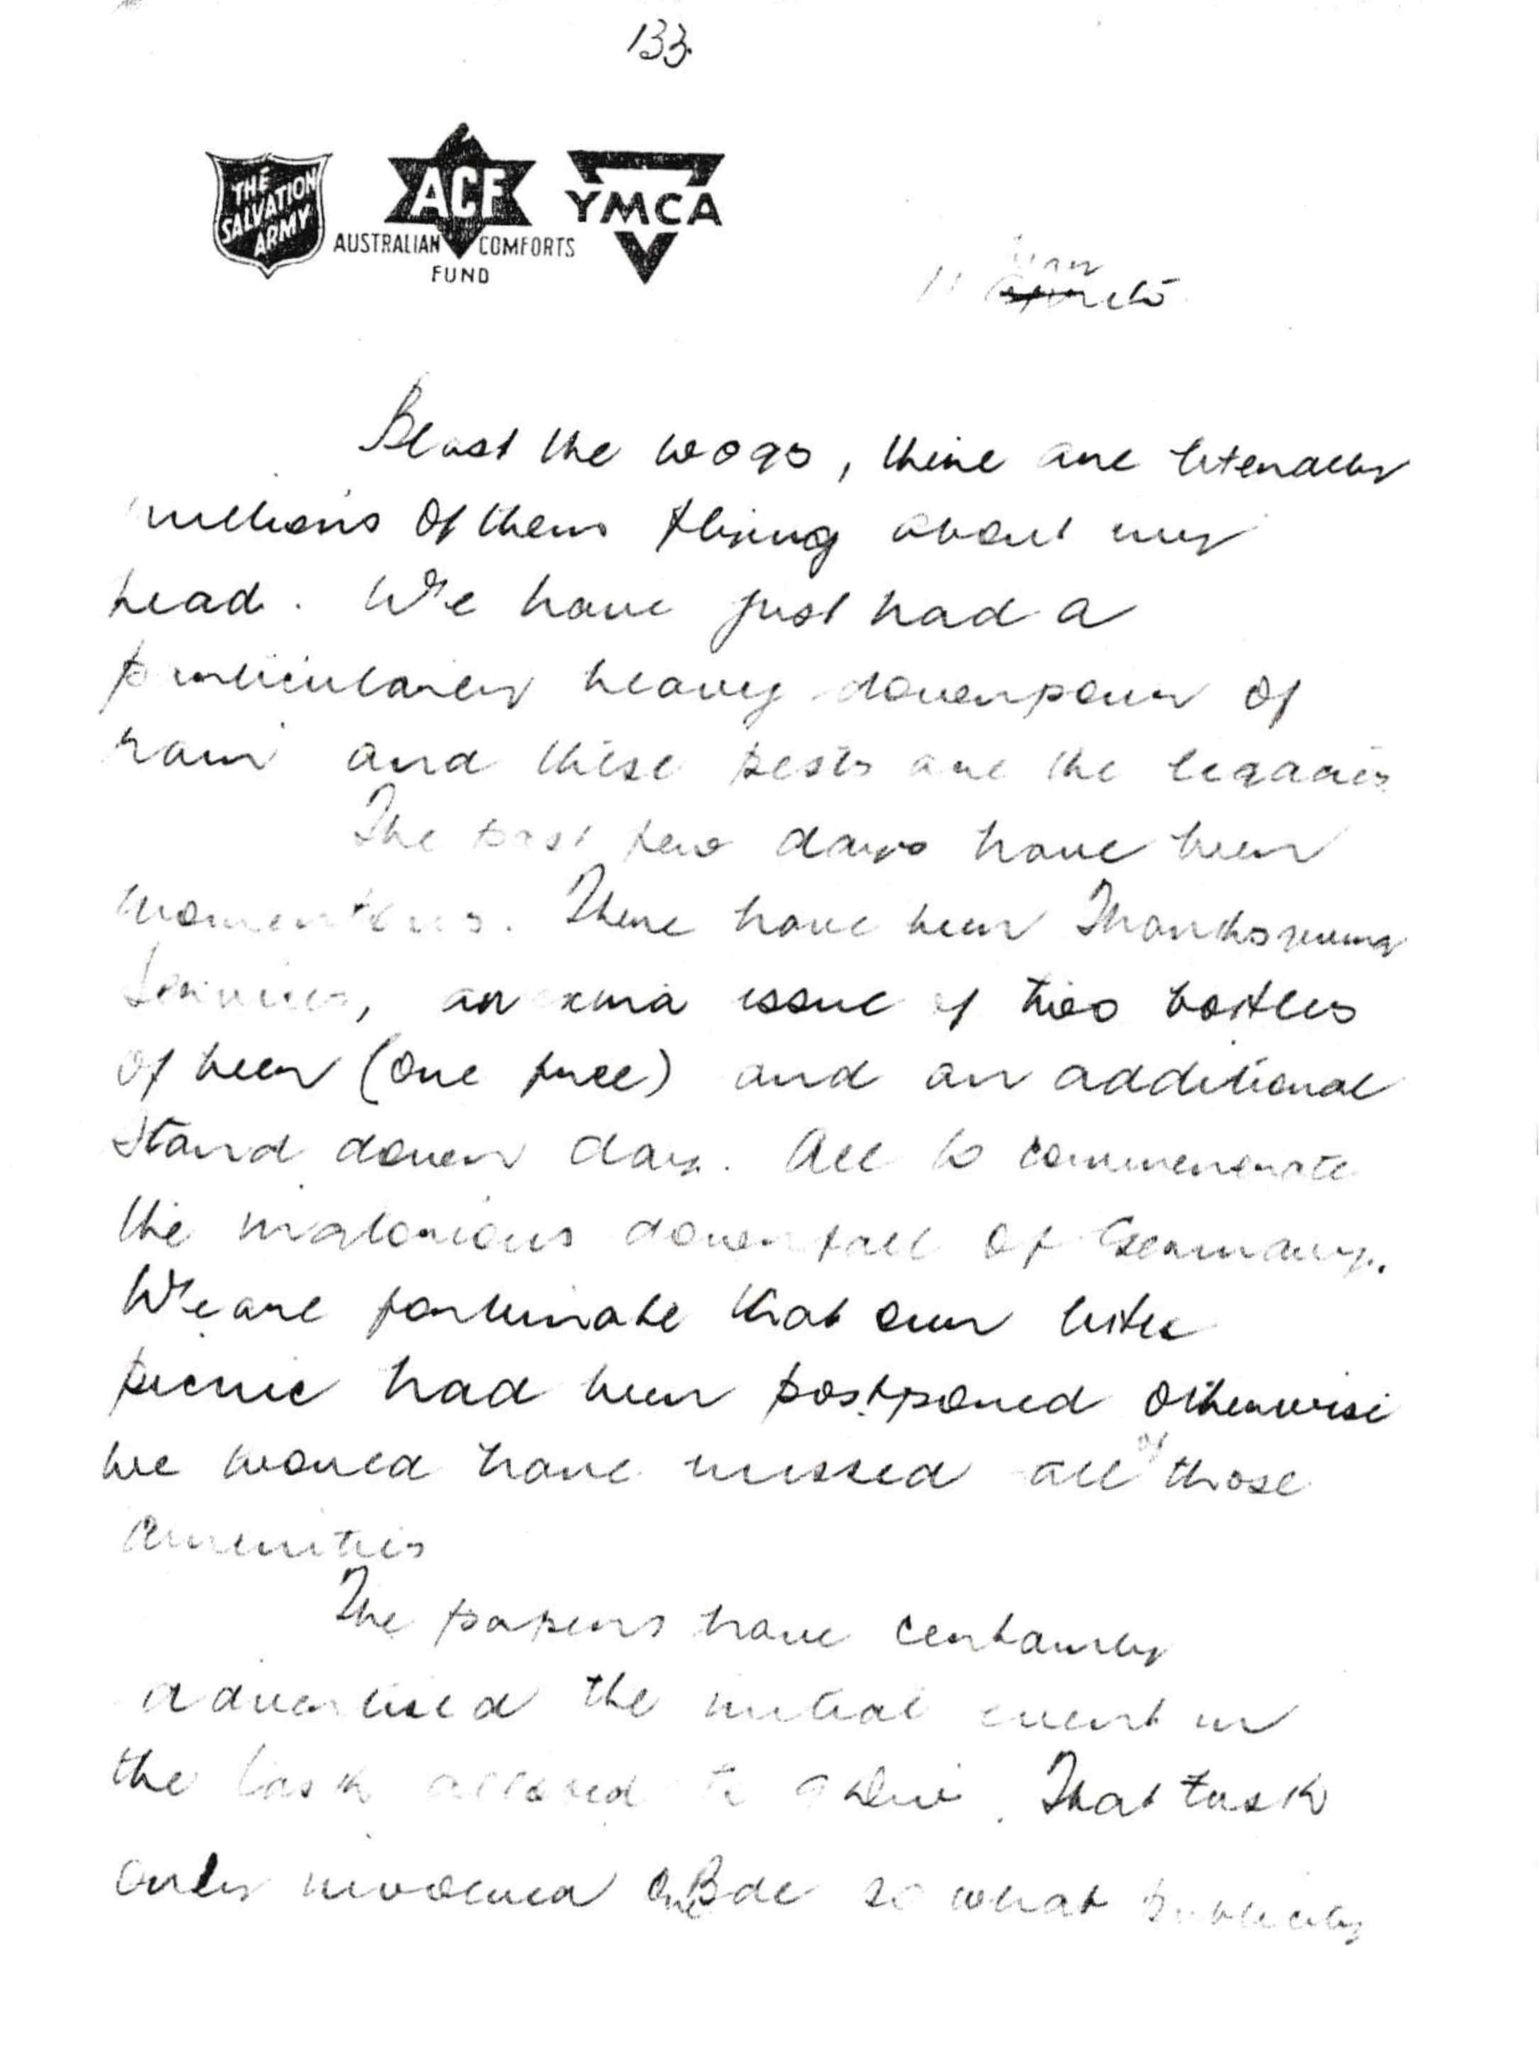 133.
THE SALVATION ARMY
ACF
AUSTRALIAN COMFORTS
FUND
YMCA
11 May
Blast the wogs, there are literally
millions of them flying about my
head. We have just had a
particularly heavy downpour of
rain and these pests are the legacies
The past few days have been
momentous. There have been Thanksgiving
Services, an extra issue of two bottles
of beer (one free) and an additional
stand down day. All to commemorate
the victorious downfall of Germany.
We are fortunate that our little
picnic had been postponed otherwise
we would have missed all of those
amenities
The papers have certainly
advertised the initial event in
the task allotted to 9 Divi. That task
only involved one Bde so what publicity